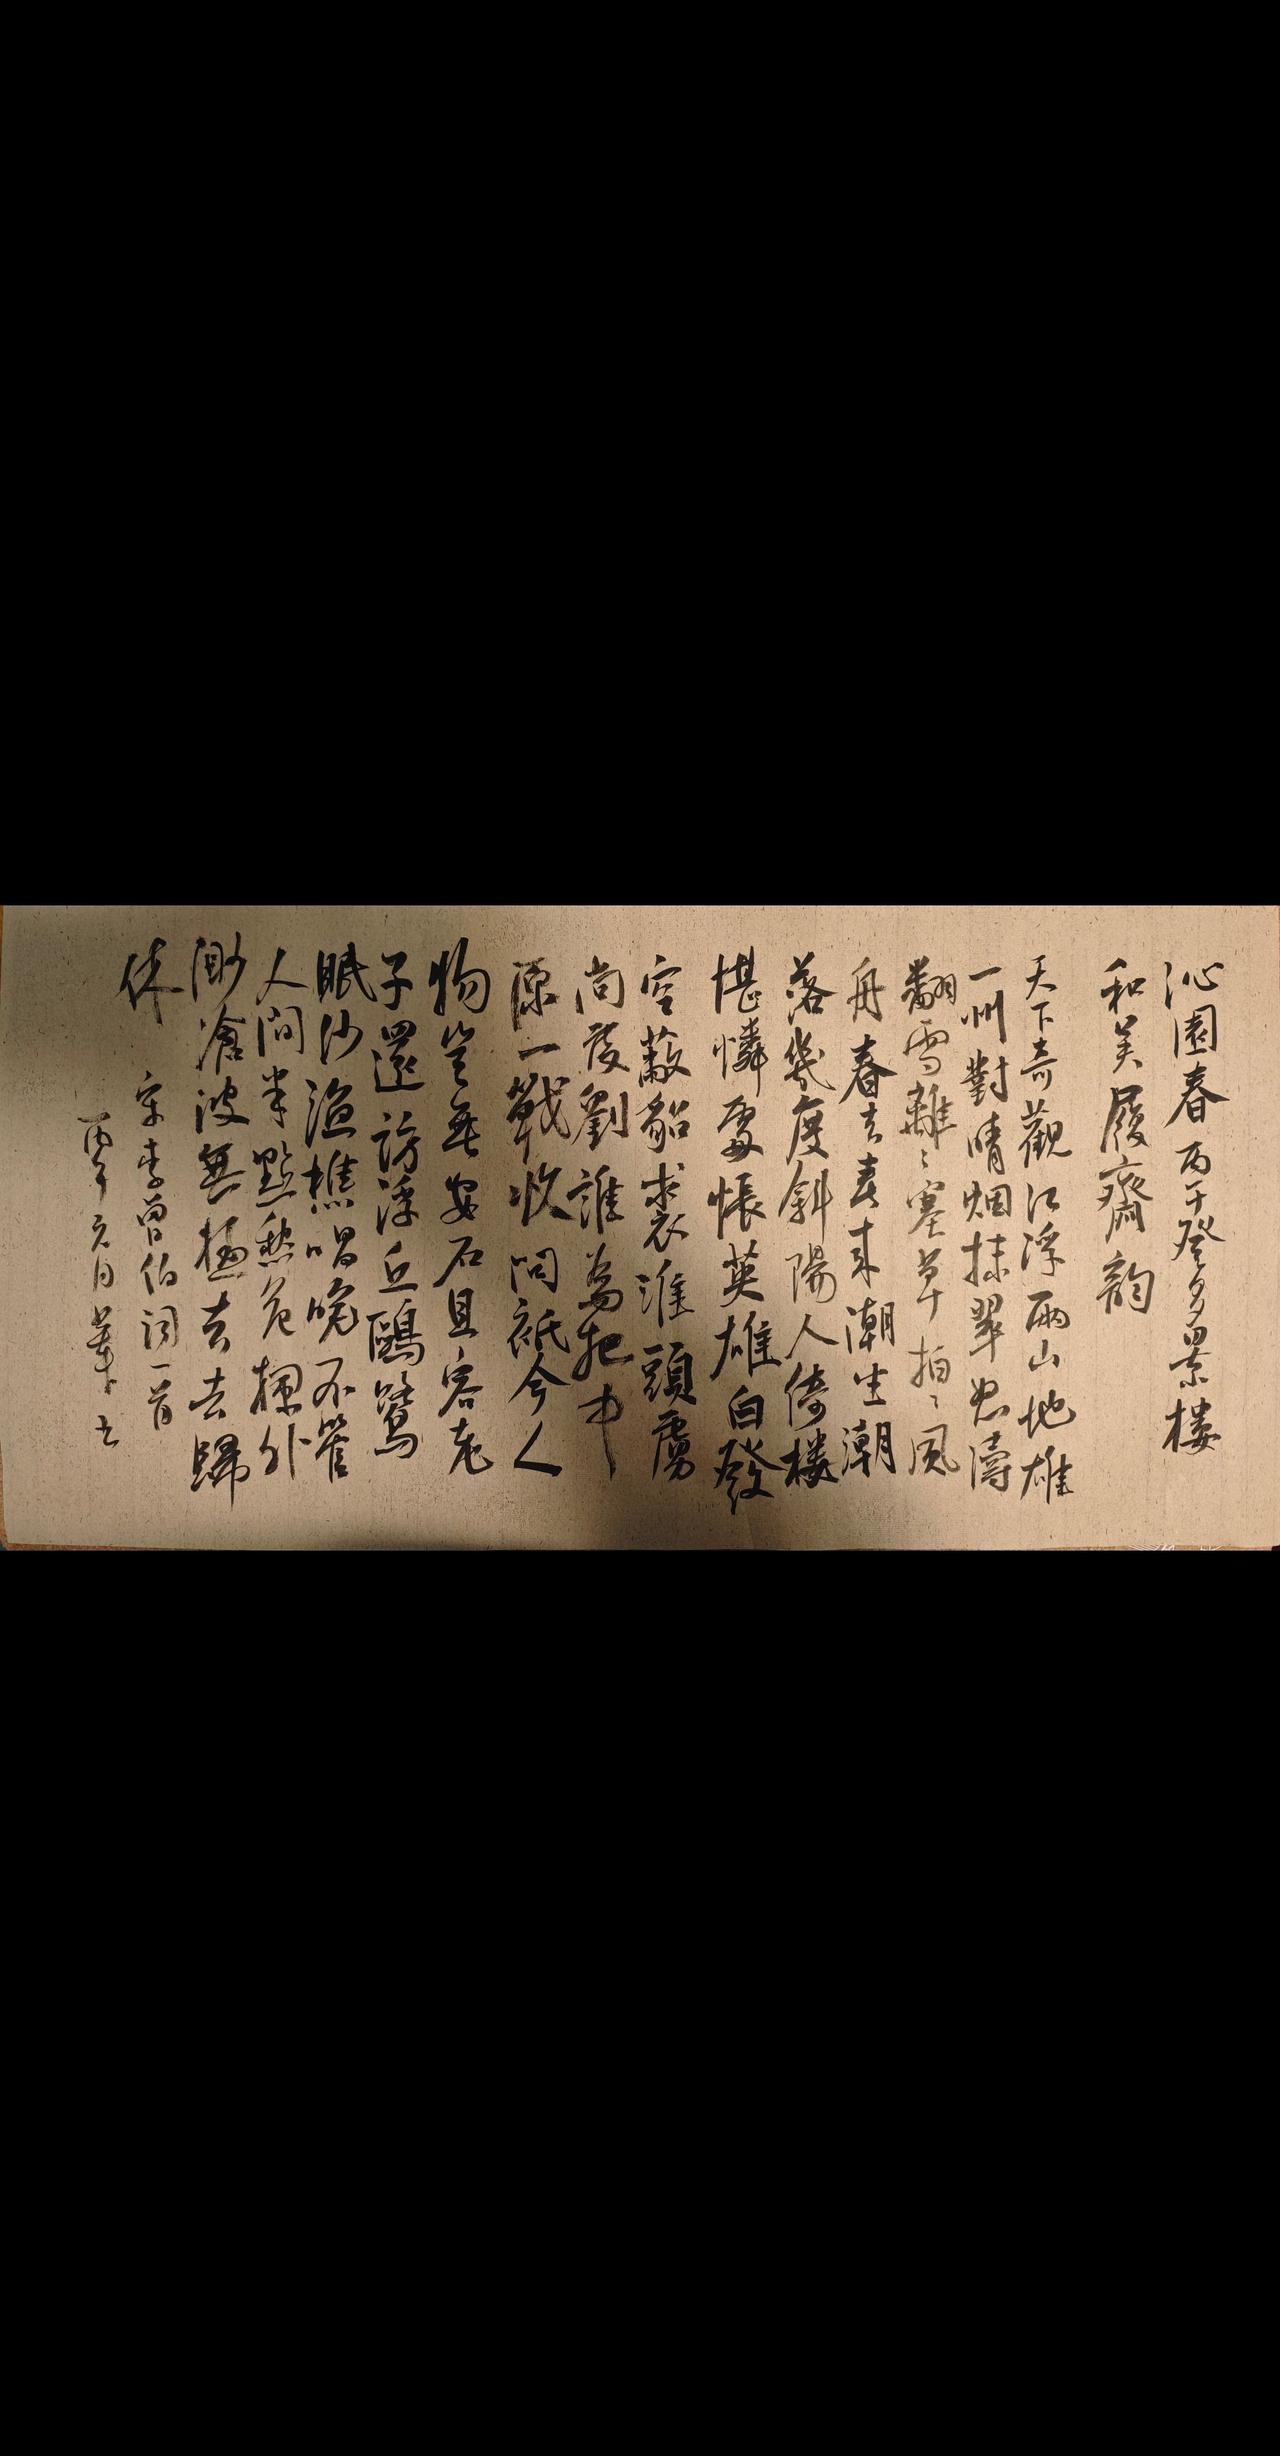 沁園春 丙午登多景樓
和吴履齋韵
天下奇觀江浮兩山地雄
一州對晴烟抹翠怒濤
翻雪離〻塞草拍〻風
舟春去春来潮生潮
落幾度斜陽人倚樓
堪憐處悵英雄白發
空敝貂裘淮頭虜
尚度劉誰爲把中
原一戰收問祇今人
物豈無安石且容老
子還訪浮丘鷗鷺
眠沙漁樵唱晚不管
人間半點愁危欄外
渺滄波無極去去歸
休
宋李曾伯詞一首
丙午元月 書